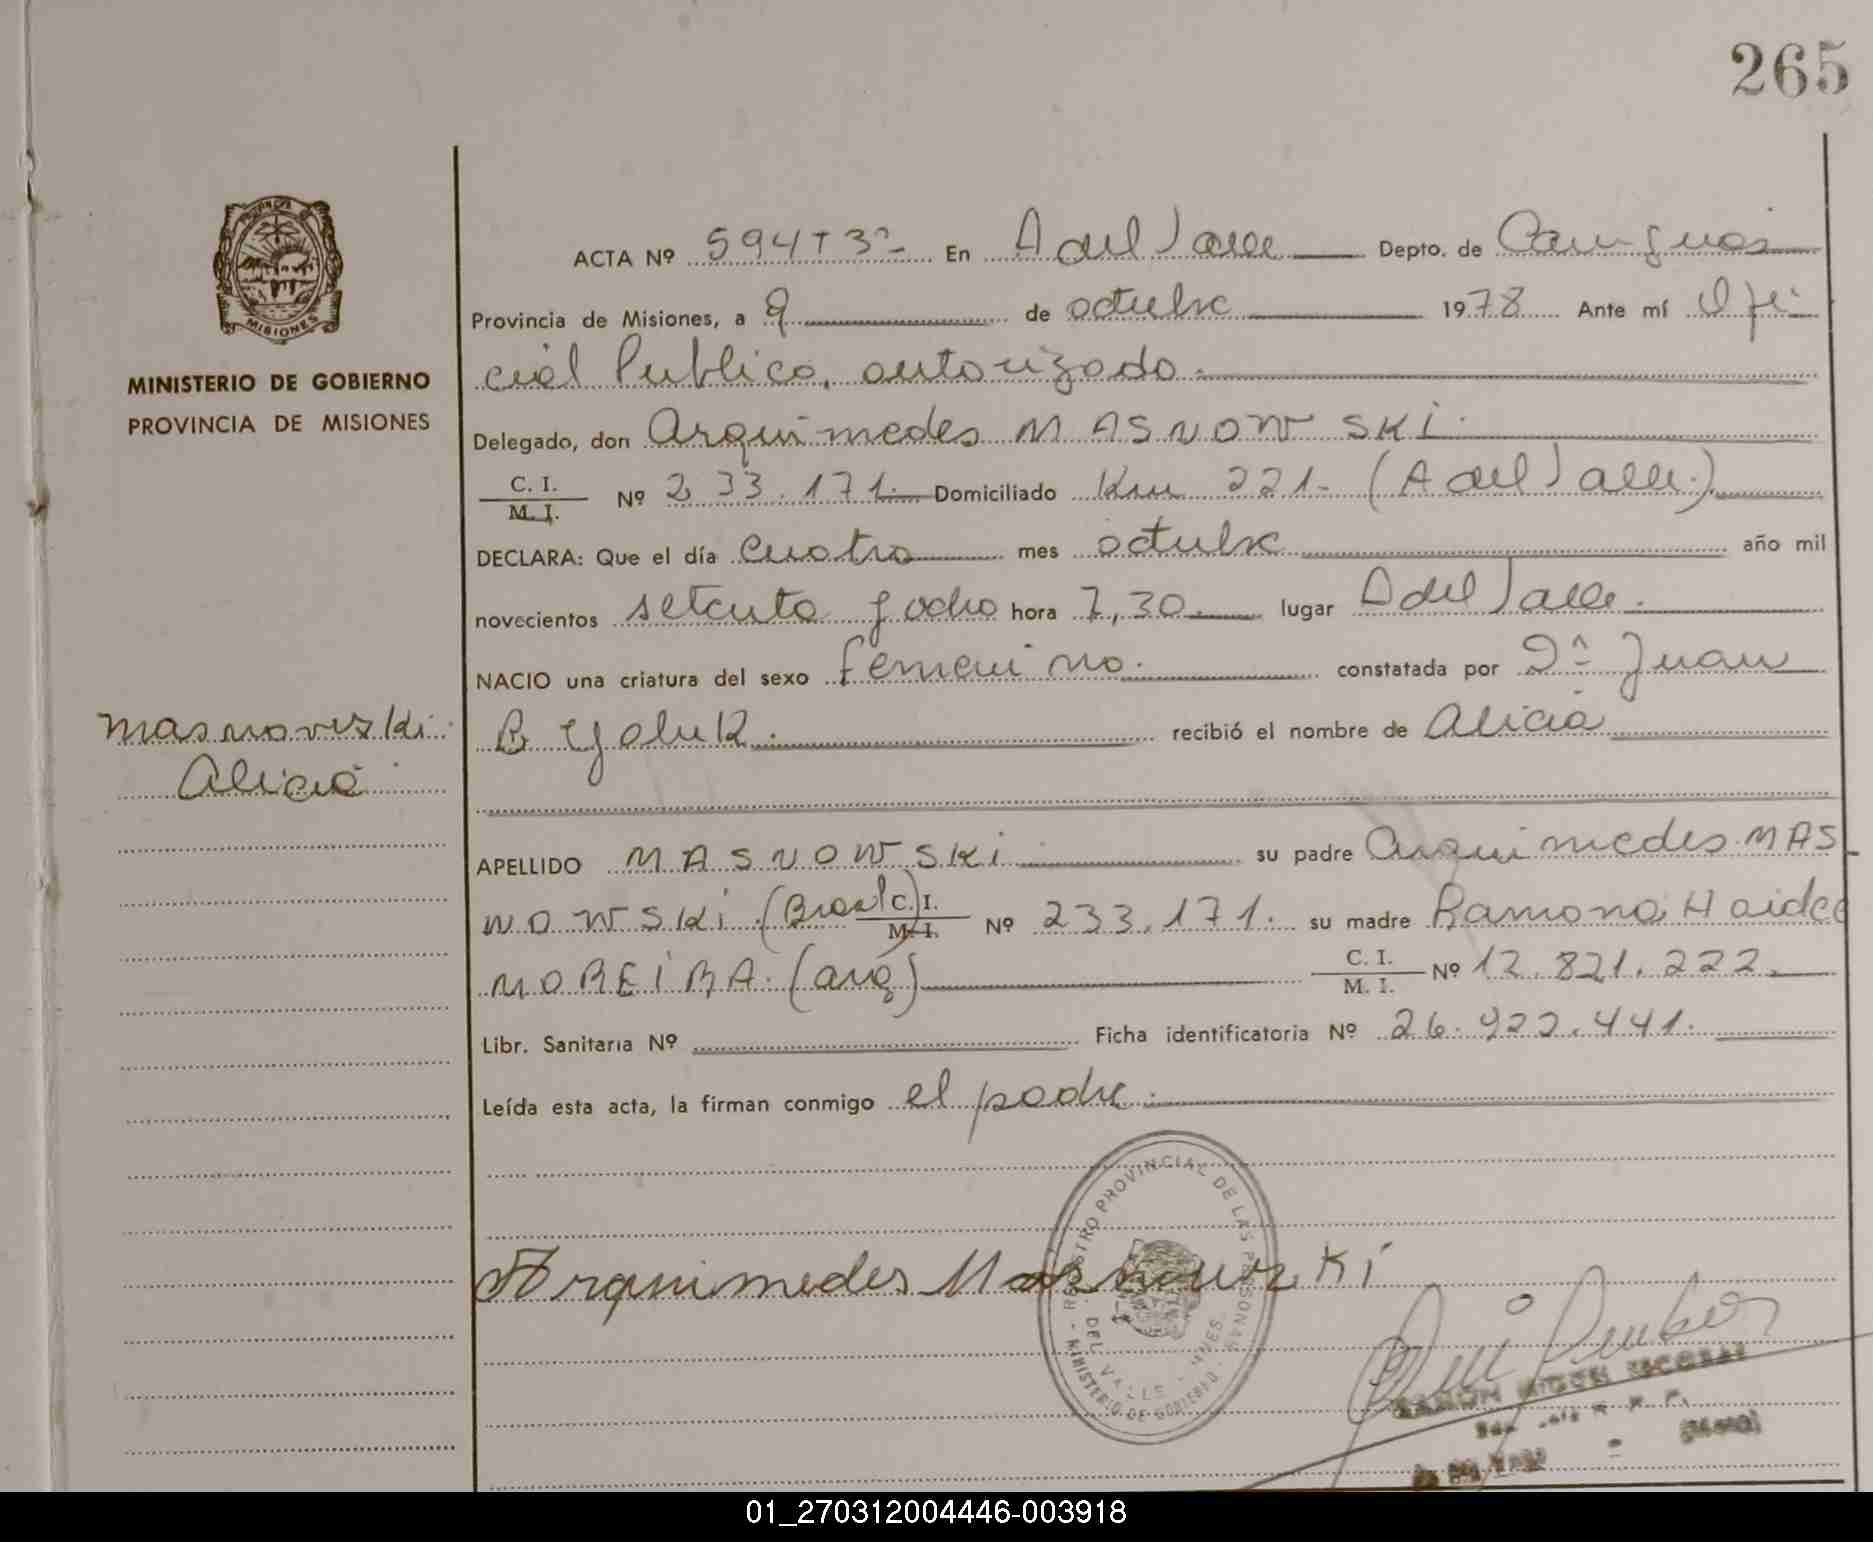 265
PROVINCIA DE
MISIONES
MINISTERIO DE GOBIERNO
PROVINCIA DE MISIONES
ACTA Nº 594 T 3º En A del Valle Depto. de Cainguás
Provincia de Misiones, a 9 de octubre 1978 Ante mí Ofi
cial Publico, autorizado.
Delegado, don Arquimedes MASNOWSKI.
C. I.
M. I.
Nº 233.171. Domiciliado Km 221. (A del Valle.)
DECLARA: Que el día cuatro mes octubre año mil
novecientos setenta y ocho hora 7,30. lugar A del Valle.
NACIO una criatura del sexo femenino. constatada por Dº Juan
recibió el nombre de Alicia
Masnowski.
Alicia
APELLIDO MASNOWSKI su padre Arquimedes MAS
NOWSKI. (Brasl) C. I.
M. I.
Nº 233.171. su madre Ramona Haidee
MOREIRA. (arg) C. I.
M. I.
Nº 12.821.222.
Libr. Sanitaria Nº Ficha identificatoria Nº 26.922.441.
Leída esta acta, la firman conmigo el padre.
REGISTRO PROVINCIAL DE LAS PERSONAS
DEL VALLE
MINISTERIO DE GOBIERNO
Arquimedes Masnowski
RAMON ESCOBAR
01_270312004446-003918